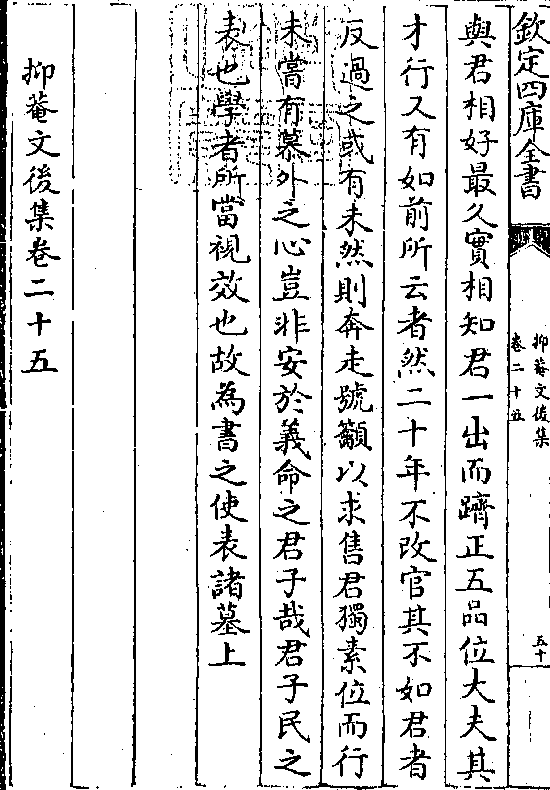 欽定四庫全書
抑菴文後集
卷二十五
五十
與君相好最久實相知君一出而躋正五品位大夫其
才行又有如前所云者然二十年不改官其不如君者
反過之或有未然則奔走號籲以求售君獨素位而行
未嘗有慕外之心豈非安於義命之君子哉君子民之
表也學者所當視效也故為書之使表諸墓上
抑菴文後集卷二十五